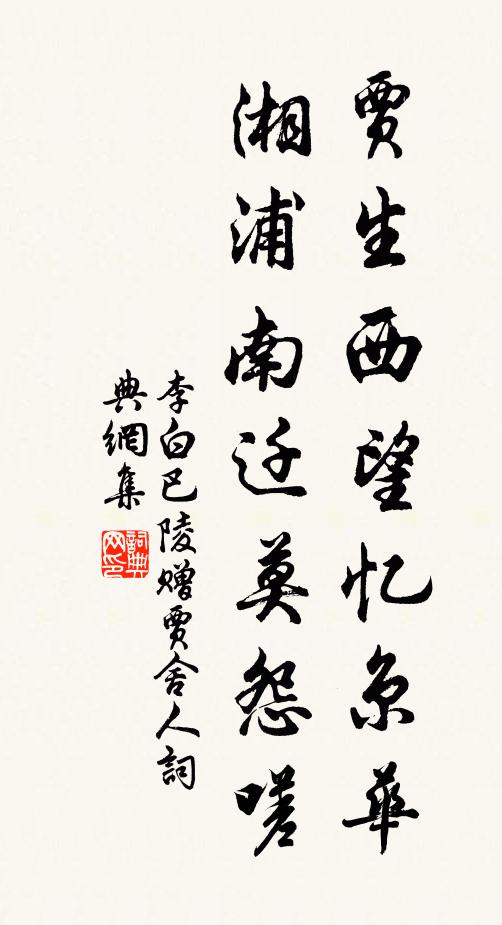 贾生西望忆京華
湘浦南迁莫怨嗟
李白巴陵赠贾舍人詞
典網集
詞典网印